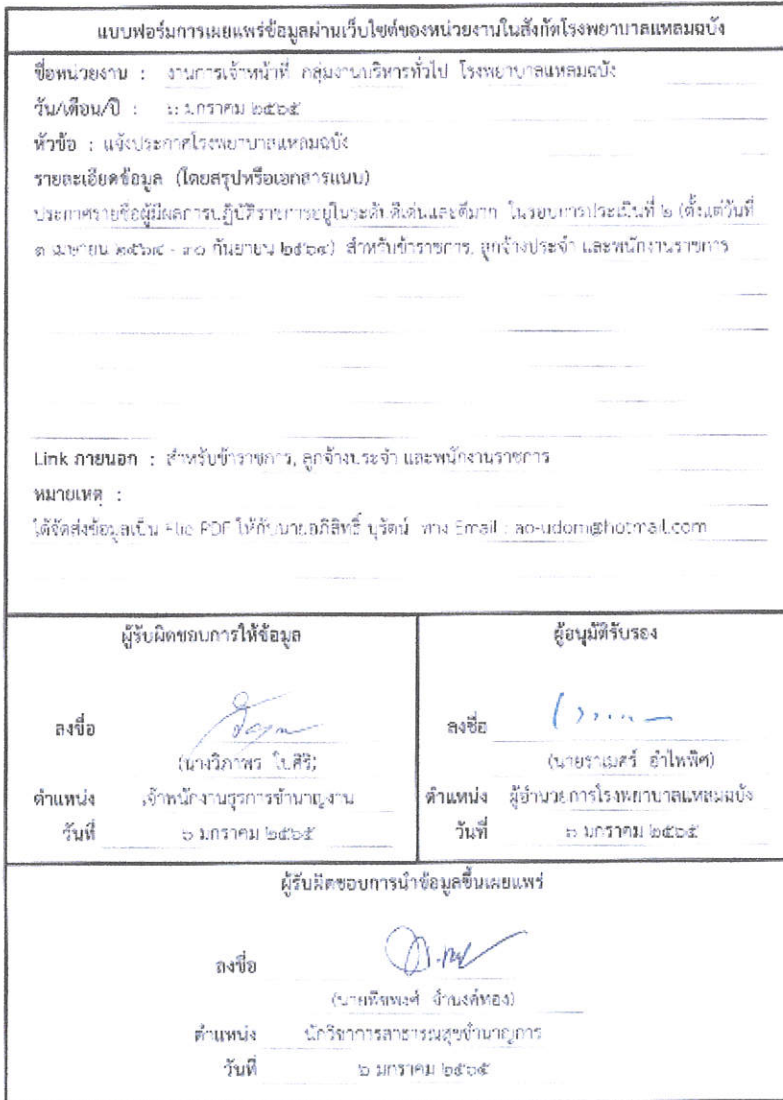 แบบฟอร์มการเผยแพร่ข้อมูลผ่านเว็บไซต์ของหน่วยงานในสังกัดโรงพยาบาลแหลมฉบัง
ชื่อหน่วยงาน : งานการเจ้าหน้าที่ กลุ่มงานบริหารทั่วไป โรงพยาบาลแหลมฉบัง
วัน/เดือน/ปี : ๖ มกราคม ๒๕๖๕
หัวข้อ : แจ้งประกาศโรงพยาบาลแหลมฉบัง
รายละเอียดข้อมูล (โดยสรุปหรือเอกสารแนบ)
ประกาศรายชื่อผู้มีผลการปฏิบัติราชการอยู่ในระดับดีเด่นและดีมาก ในรอบการประเมินที่ ๒ (ตั้งแต่วันที่
๑ เมษายน ๒๕๖๔ - ๓๐ กันยายน ๒๕๖๔) สำหรับข้าราชการ, ลูกจ้างประจำ และพนักงานราชการ
Link ภายนอก : สำหรับข้าราชการ, ลูกจ้างประจำ และพนักงานราชการ
หมายเหตุ :
ได้จัดส่งข้อมูลเป็น File PDF ให้กับนายอภิสิทธิ์ บุรัตน์ ทาง Email : ao-udom@hotmail.com
ผู้รับผิดชอบการให้ข้อมูล
ผู้อนุมัติรับรอง
ลงชื่อ
ลงชื่อ
(นางวิภาพร ใบศิริ)
(นายราเมศร์ อำไพพิศ)
ตำแหน่ง เจ้าพนักงานธุรการชำนาญงาน
ตำแหน่ง ผู้อำนวยการโรงพยาบาลแหลมฉบัง
วันที่ ๖ มกราคม ๒๕๖๕
วันที่ ๖ มกราคม ๒๕๖๕
ผู้รับผิดชอบการนำข้อมูลขึ้นเผยแพร่
ลงชื่อ
(นายพิชพงศ์ จำนงค์ทอง)
ตำแหน่ง นักวิชาการสาธารณสุขชำนาญการ
วันที่ ๖ มกราคม ๒๕๖๕